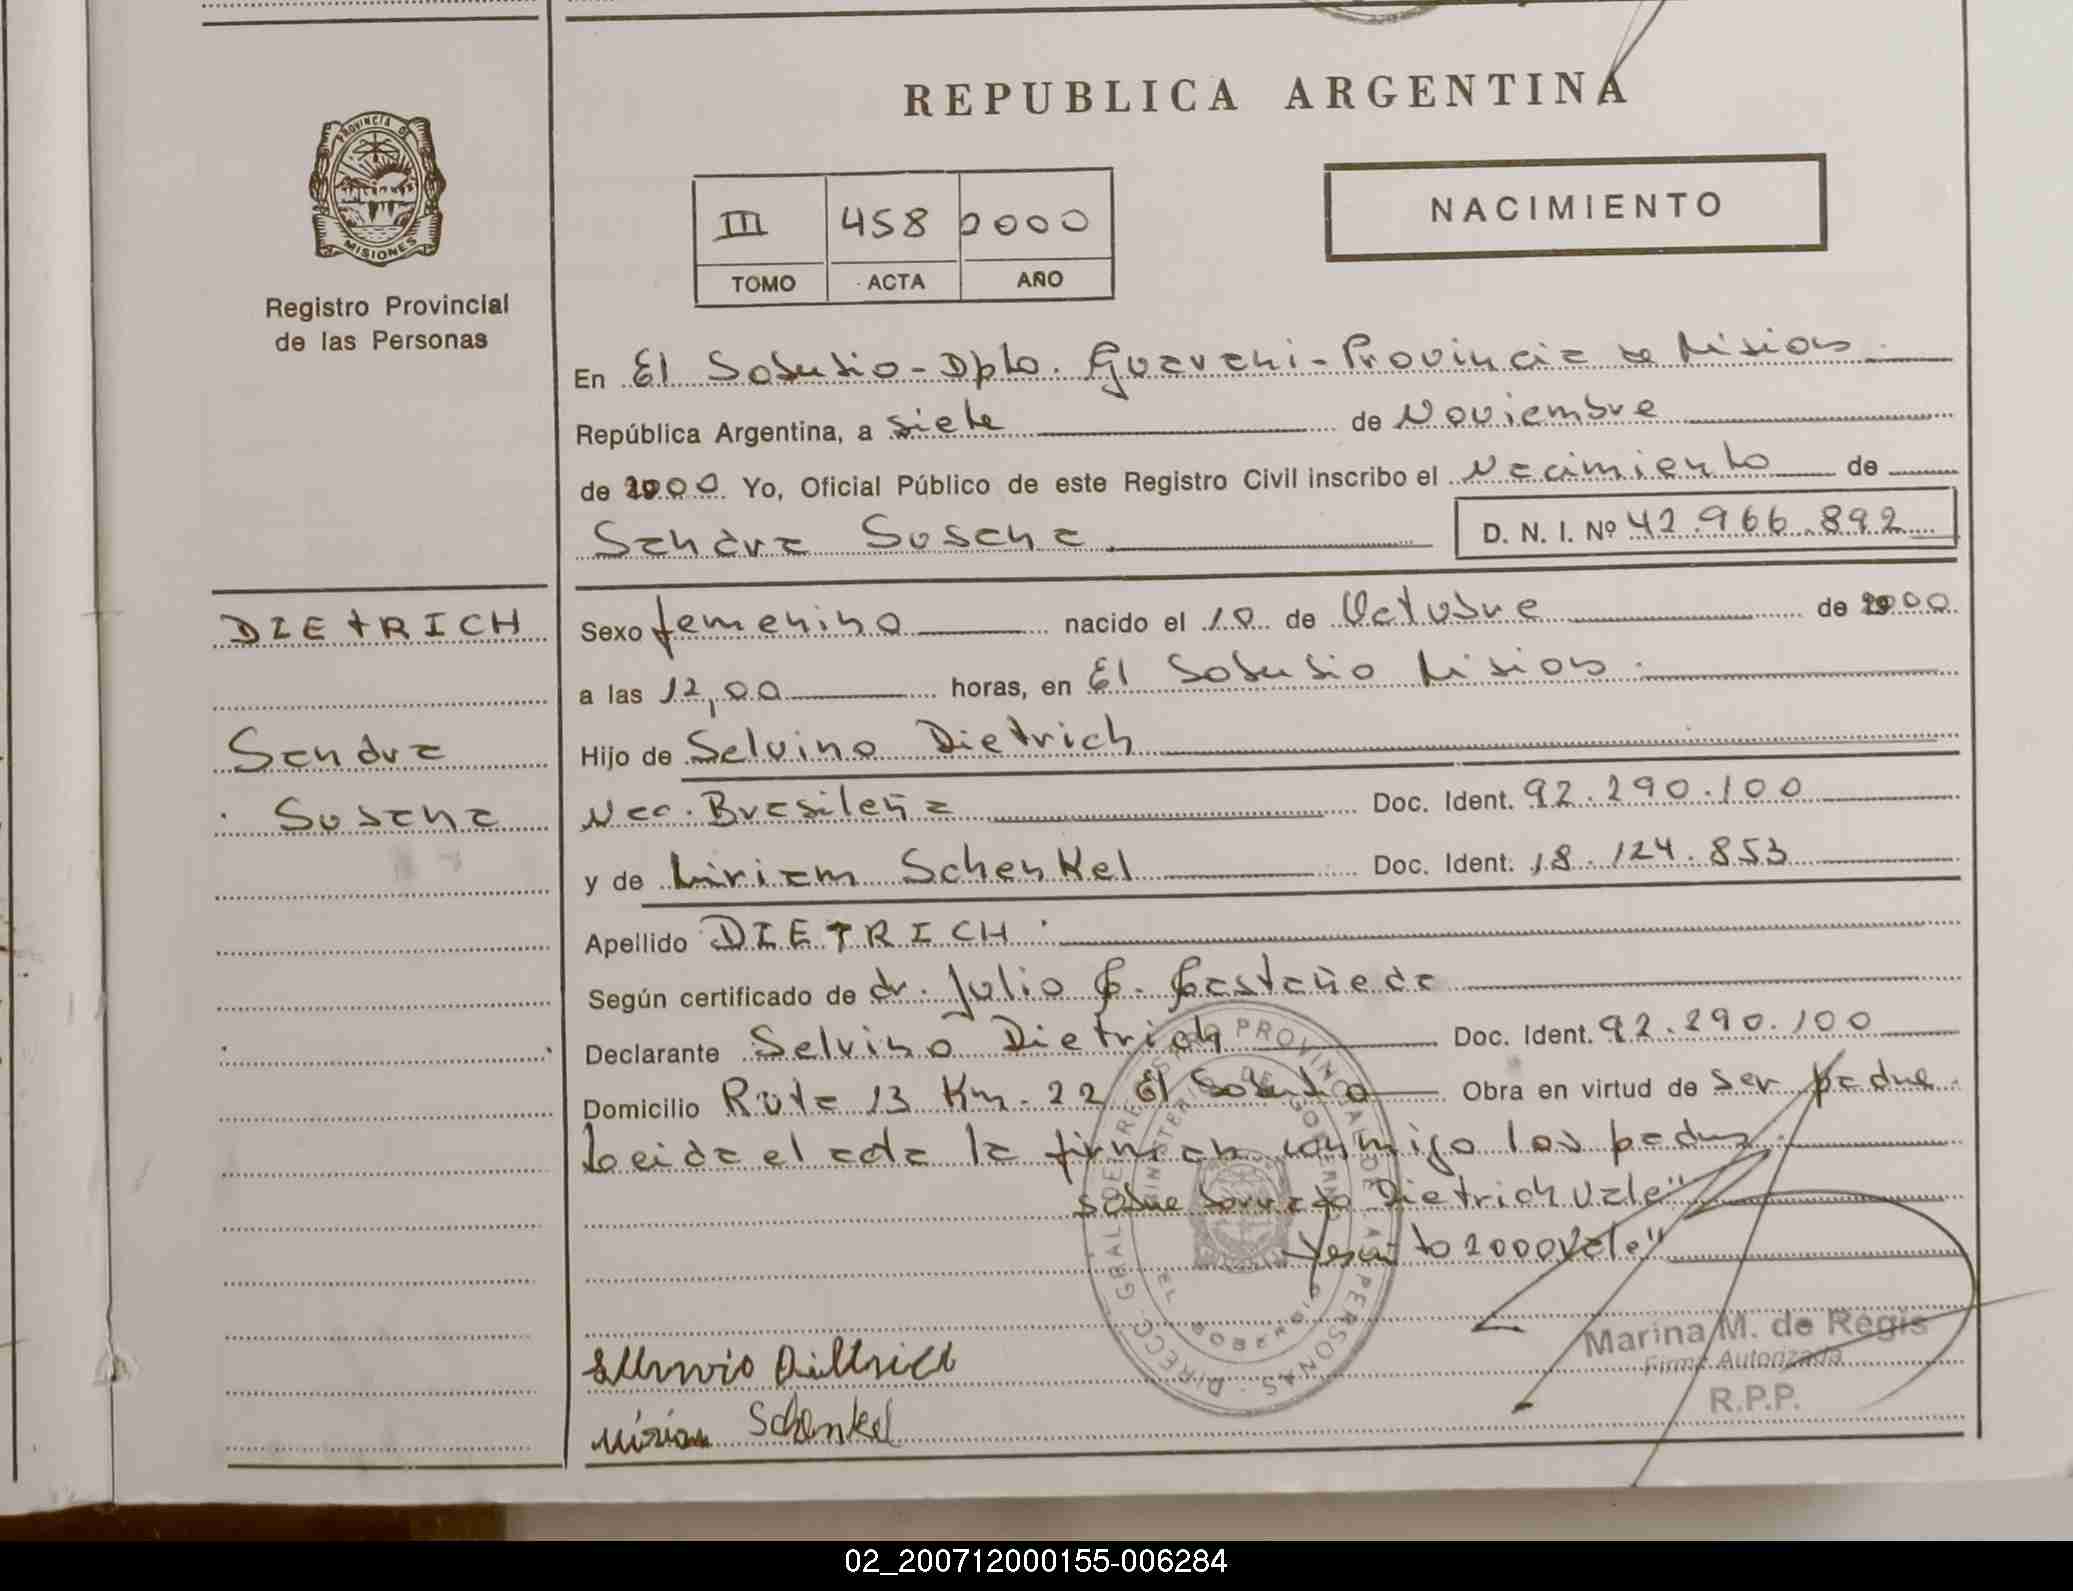 REPUBLICA ARGENTINA
PROVINCIA DE
MISIONES
Registro Provincial
de las Personas
III 458 2000
TOMO ACTA AÑO
NACIMIENTO
En El Soberbio - Dpto. Guarani - Provincia de Misiones
República Argentina, a siete de Noviembre
de 2000 Yo, Oficial Público de este Registro Civil inscribo el Nacimiento de
Sandra Susana D. N. I. Nº 42.966.892
DIETRICH
Sandra
Susana
Sexo femenino nacido el 10 de Octubre de 2000
a las 12,00 horas, en El Soberbio Misiones
Hijo de Selvino Dietrich
Nac. Brasileña Doc. Ident. 92.290.100
y de Miriam Schenkel Doc. Ident. 18.124.853
Apellido DIETRICH
Según certificado de dr. Julio C. Castañeda
Declarante Selvino Dietrich Doc. Ident. 92.290.100
Domicilio Ruta 13 Km. 22 El Soberbio Obra en virtud de ser padre
Leida el acta la firman conmigo los padres
sobre borrado Dietrich vale"
2000 vale"
REGISTRO PROVINCIAL DE LAS PERSONAS
MINISTERIO DE GOBIERNO
EL SOBERBIO
Marina M. de Regis
Firma Autorizada
R.P.P.
Schenkel
02_200712000155-006284